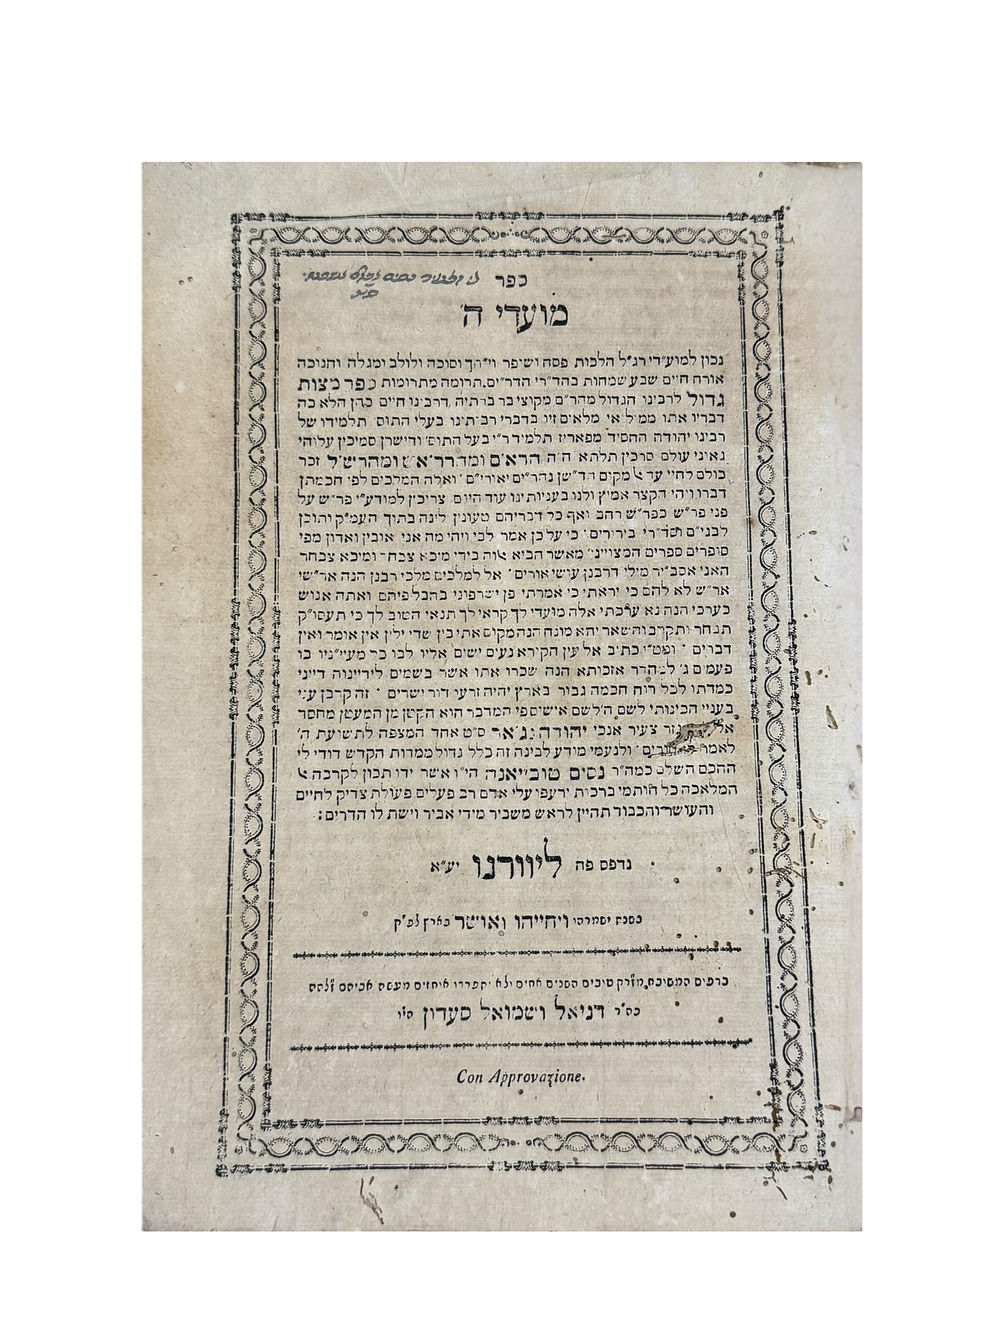 ספר
מועדי ה'
נכון למועדי רג״ל הלכות פסח ושיפר וסוכה ולולב ומגלה וחנוכה
אורח חיים שבע שמחות בהד״רי הדר״ים. תרומה מתרומות ספר מצות
גדול לרבינו הגדול מהר״ם מקוצי בר בתיה, דרבינו חיים כהן הלא כה
דבריו אתו ממלאי מלאים זיו בדברי רבותינו בעלי התוס' תלמידו של
רבינו יהודה החסיד מפאריז תלמיד ר״י בעל התוס' ודישרן סמיכין עלוהי
גאוני עולם סרכין תלתא ה״ה הרא״ם ומהרש״ל זכר
כולם לחיי עד מקים הד״שן נהר״ים יאורי״ם ואלה המלכים לפי חכמתן
דברו ויהי הקצר אמיץ ולנו בעניותינו עוד היום צריכין למודע״י פר״ש על
פני פר״ש כפר״ש רהב ואף כל דבריהם טעונין לינה בתוך העמ״ק יתוכן
לבני״ם וסד״רי בירורים כי על כן אמר לבי ויהי מה אני אובין ואדון מפי
סופרים ספרים המצויינ' מאשר הביא אוה בידי מיכא צבחר ומיכא צבחר
האני אסב״יר מילי דרבנן עושי אורים אל למלכים מלכי רבנן הנה אר״שי
אר״ש לא להם כי יראתי כי אמרתי פן ישרפוני בהבל פיהם ואתה אנוש
כערכי הנה נא ערכתי אלה מועדי לך קראי לך תנאי הטוב לך כי תעסו״ק
תבחר ותקרב והשאר יהא מונח הנה מקום אתי בין שדי ילין אין אומר ואין
דברים ופטי כתיב אל עין הקורא נעים ישים אליו לבו כל מעייניו בו
פעמים ג' למהדר אזכותא הנה שכרו אתו אשר בשמים לידיינות דייני
כמדתו לכל רוח חכמה גבור בארץ יהיה זרעי דור ישרים זה קרבן עני
בעניי הכינותי לשם ה' לשם אישים פי המדבר הוא הקטן מן המעטן מחסד
צעיר אנכי יהודה נג'אר ס״ט אחד המצפה לתשועת ה'
לאמר ולנעמי מודע לבינה זה כלל גדול ממדות הקדש דודי לי
ההכם השלם כמה״ר נסים טובייאנה הי״ו אשר ידו תכון לקרבה אל
המלאכה כל חותמי ברכות ירעפו עלי אדם רב פעלים פעולת צדיק לחיים
והעושר והכבוד תהיין לראש משביר מידי אביר וישת לו הדרים:
נדפס פה ליוורנו יע״א
בשנת ישמרהו ויחייהו ואושר בארץ לפ״ק
בדפוס המשובח מזרק טובים השנים אחים ולא יתפרדו אוחזים מעשה אביהם זלהה
כה״ר דניאל ושמואל סעדון הי״ו
Con Approvazione.